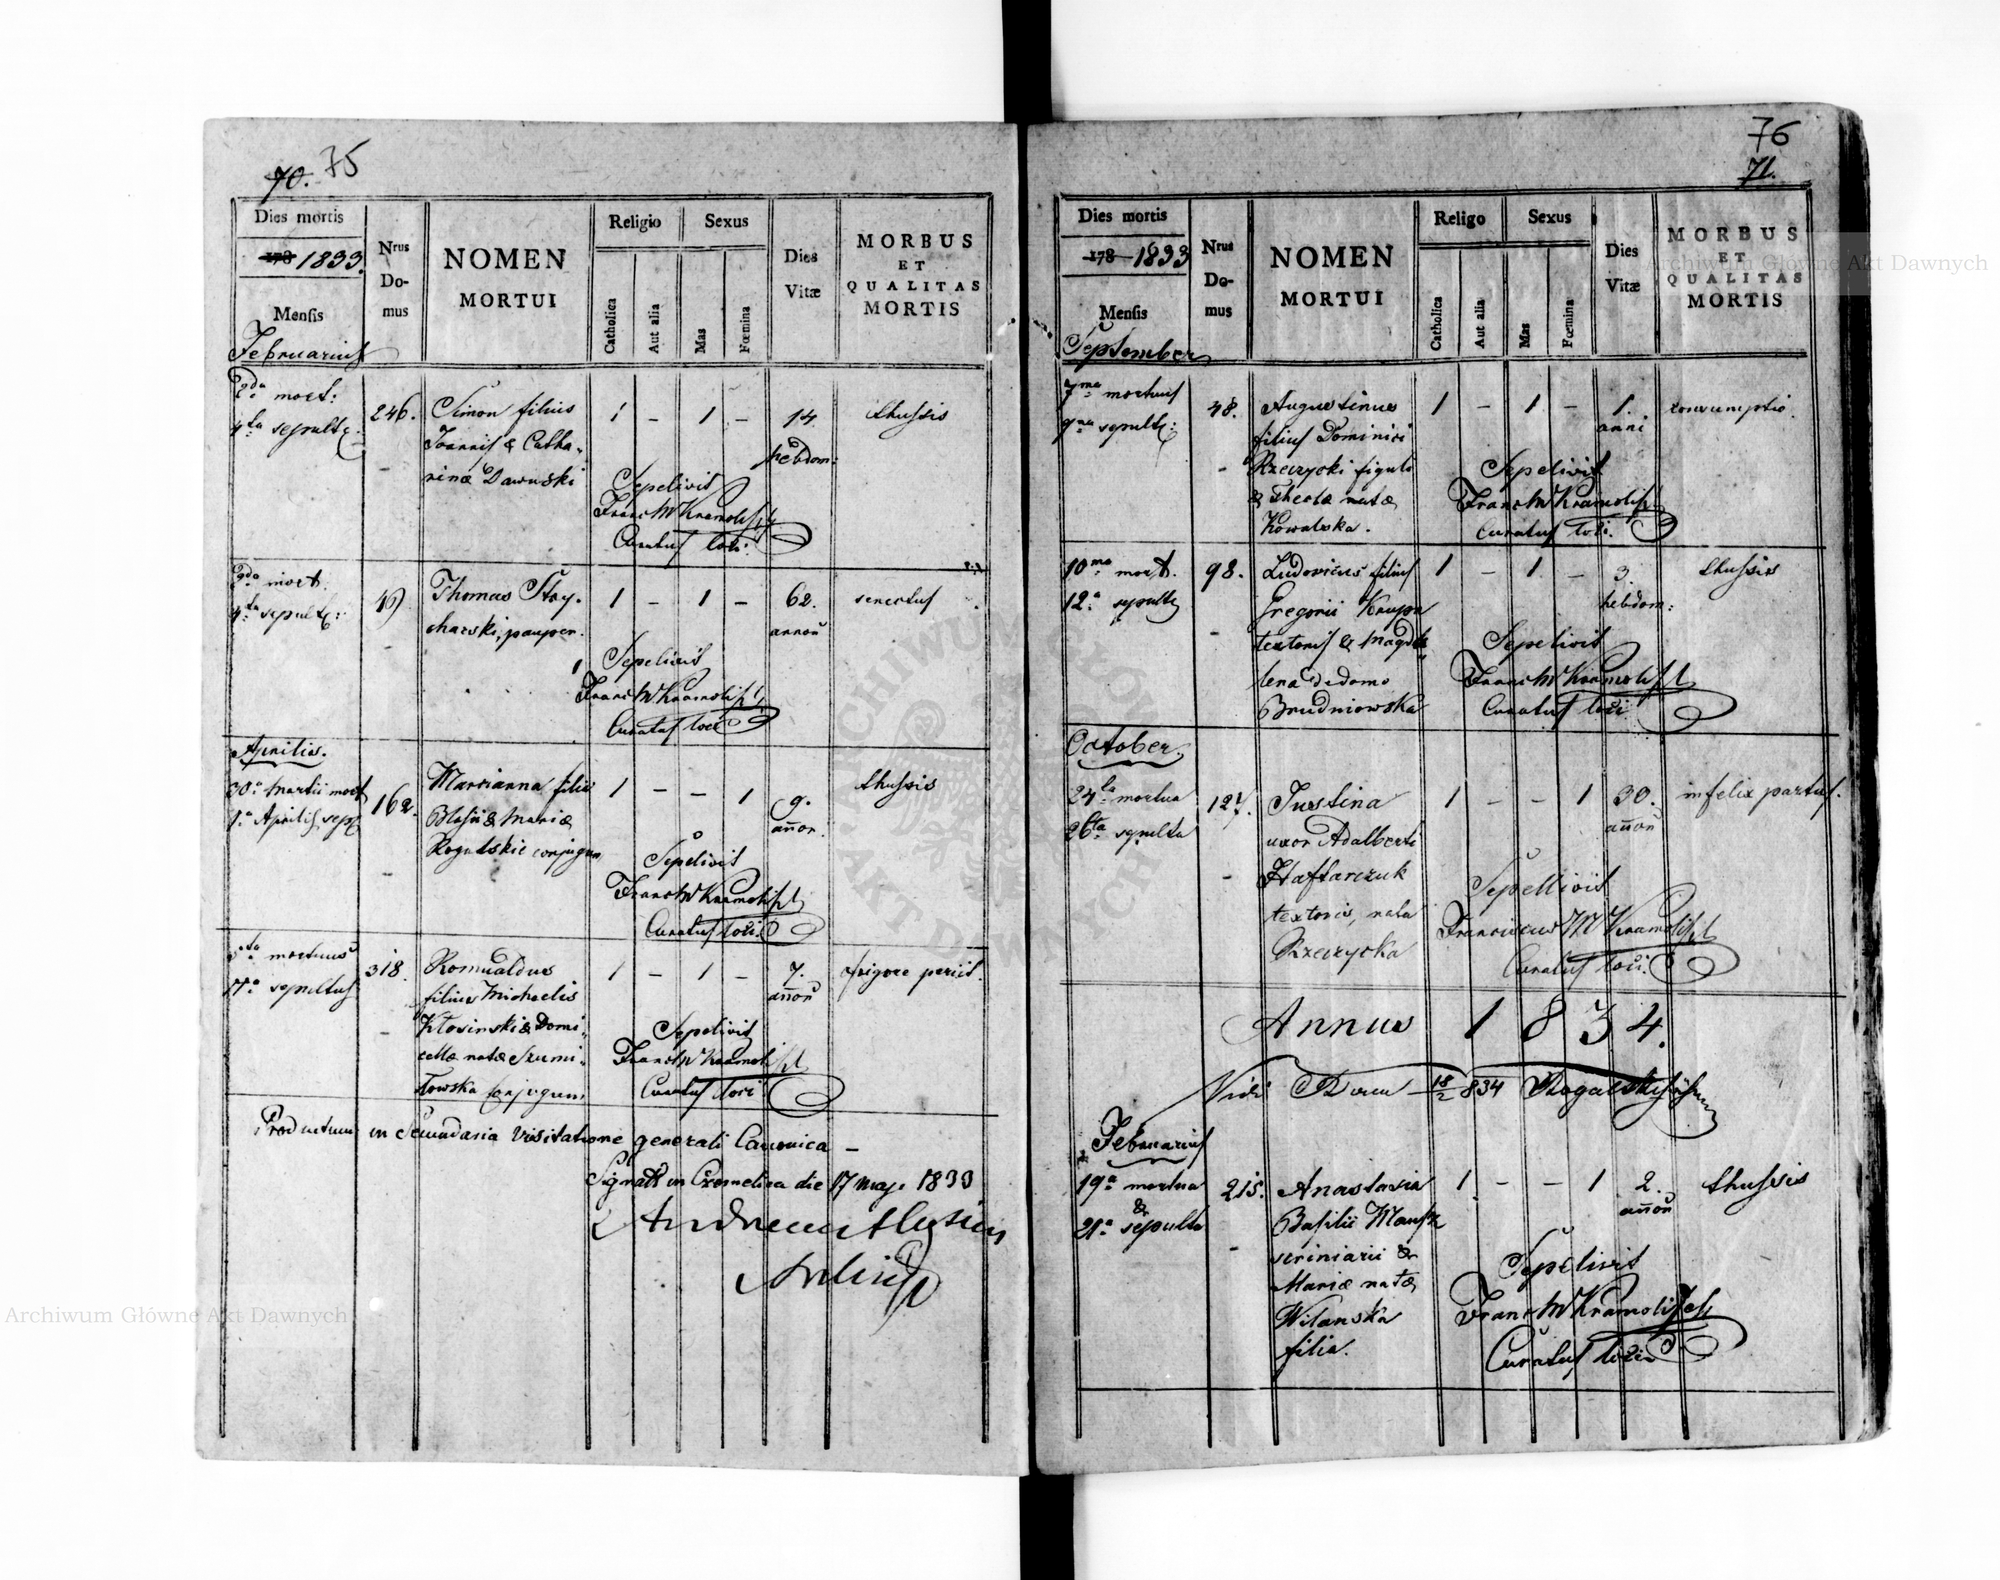 70. 75
Dies mortis
178 1833.
Mensis
Februarius
Nrus
Do-
mus
NOMEN
MORTUI
Religio
Catholica
Aut alia
Sexus
Mas
Fœmina
Dies
Vitæ
MORBUS
ET
QUALITAS
MORTIS
2da mort:
4ta sepult:
246.
Simon filius
Joannis & Catha-
rinæ Dawuski
1 - 1 -
14
hebdom:
thussis
Sepelivit
Franc M Kramolisch
Curatus loci.
2da mort.
4ta sepult:
Thomas Stry-
charski, pauper.
1 - 1 -
62.
annoru
senectus
Sepelivit
Franc M Kramolisch
Curatus loci
Aprilis.
30a Martii mort
1a Aprilis sep
162.
Marianna filia
Blasii & Mariæ
Rogalskie conjugum
1 - - 1
9.
annor.
thussis
Sepelivit
Franc M Kramolisch
Curatus loci.
mortuus
17a sepultus
318.
Romualdus
filius Michaelis
Kłosinski & Domi-
cellæ natæ Szumi-
łowska conjugum
1 - 1 -
7.
annoru
frigore periit.
Sepelivit
Franc M Kramolisch
Curatus loci
Productum in Secundaria Visitatione generali Canonica -
Signatt in die 17 maji 1833
76
71.
Dies mortis
178 1833
Mensis
September
Nrus
Do-
mus
NOMEN
MORTUI
Religo
Catholica
Aut alia
Sexus
Mas
Fœmina
Dies
Vitæ
MORBUS
ET
QUALITAS
MORTIS
7ma mortuus
9na sepult:
48.
Augustinus
filius Dominici
Rzeczycki figuli
& Theclæ natæ
Kowalska.
1 - 1 -
1.
anni
consumptio.
Sepelivit
Franc M Kramolisch
Curatus loci.
10ma mort.
12a sepult
98.
Ludovicus filius
Gregorii Krupa
textoris & Magda-
lena de domo
Brudniowska
1 - 1 -
3.
hebdom:
thussis
Sepelivit
Franc M Kramolisch
Curatus loci
October.
24ta mortua
26ta sepulta
127.
Justina
uxor Adalberti
Haftarczuk
textoris, nata
Rzeczycka
1 - - 1
30.
annoru
infelix partus.
Sepellivit
Franciscus M Kramolisch
Curatus loci.
Annus 1834.
Vidi 18/2 834 Rogalski
Februarius
19a mortua
&
21a sepulta
215.
Anastasia
Basilii
scriniarii &
Mariæ natæ
Witanska
filia.
1 - - 1
2.
annoru
thussis
Sepelivit
Franc M Kramolisch
Curatus loci
Archiwum Główne Akt Dawnych
ARCHIWUM GŁÓWNE AKT DAWNYCH
Archiwum Główne Akt Dawnych